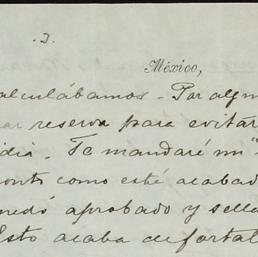 .3.
México,
alculábamos - Por algun
ar reserva para evitar
idia. Te mandaré mi "
onto como esté acabad
uedó aprobado y sella
Esto acaba de fortal